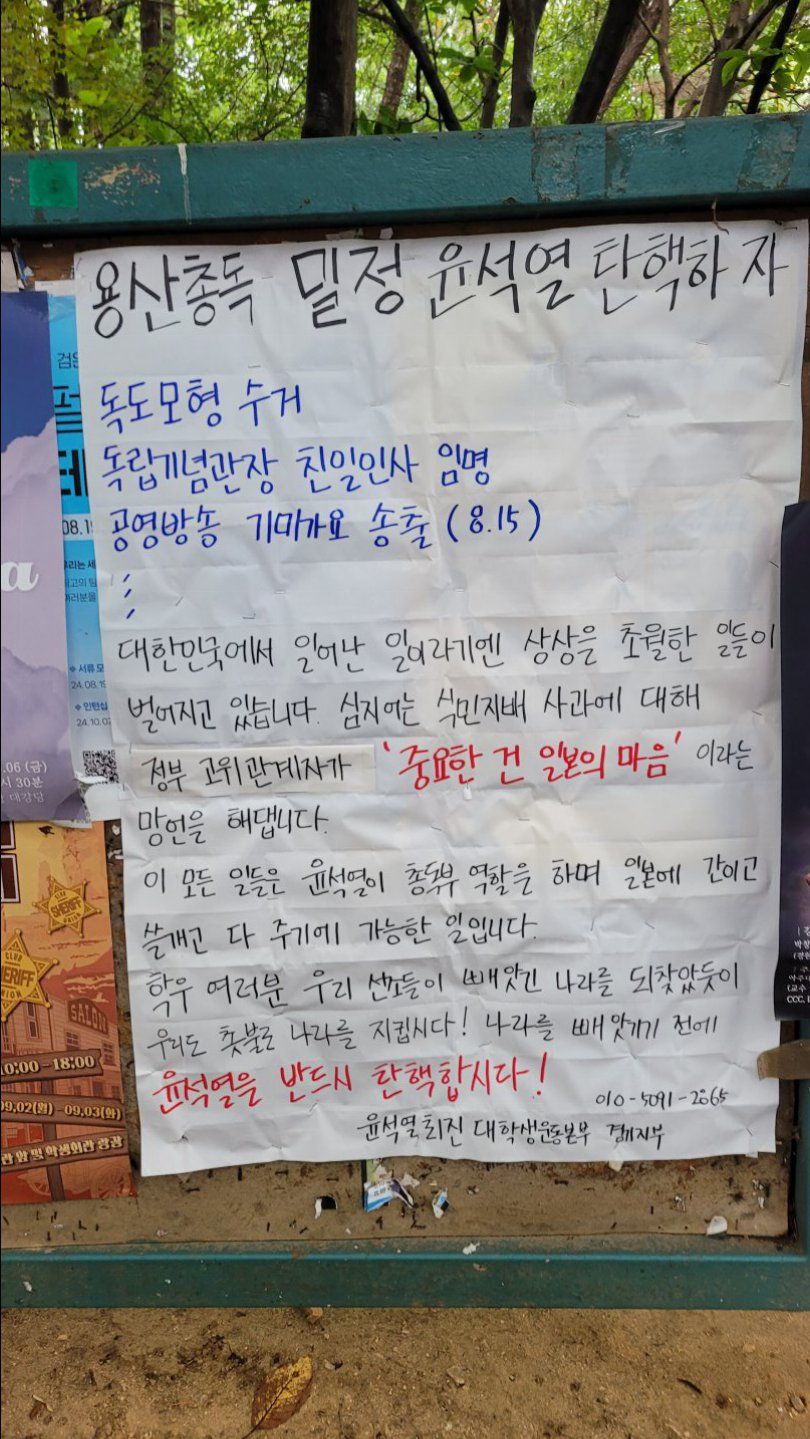 용산총독 밀정 윤석열 탄핵하자
독도모형 수거
독립기념관장 친일인사 임명
공영방송 기미가요 송출 (8.15)
⋮
대한민국에서 일어난 일이라기엔 상상을 초월한 일들이
벌어지고 있습니다. 심지어는 식민지배 사과에 대해
정부 고위관계자가 '중요한 건 일본의 마음' 이라는
망언을 해댑니다.
이 모든 일들은 윤석열이 총독부 역할을 하며 일본에 간이고
쓸개고 다 주기에 가능한 일입니다.
학우 여러분 우리 선조들이 빼앗긴 나라를 되찾았듯이
우리도 촛불로 나라를 지킵시다! 나라를 빼앗기기 전에
윤석열을 반드시 탄핵합시다!
010-5091-2865
윤석열퇴진 대학생운동본부 경기지부
a
검은
08.19
24.08.19
24.10.02
.06 (금)
시 30분
대강당
CLUB
SHERIFF
UNION
SALOON
10:00 -18:00
09.02(월) -09.03(화)
관 앞 및 학생회관 광장